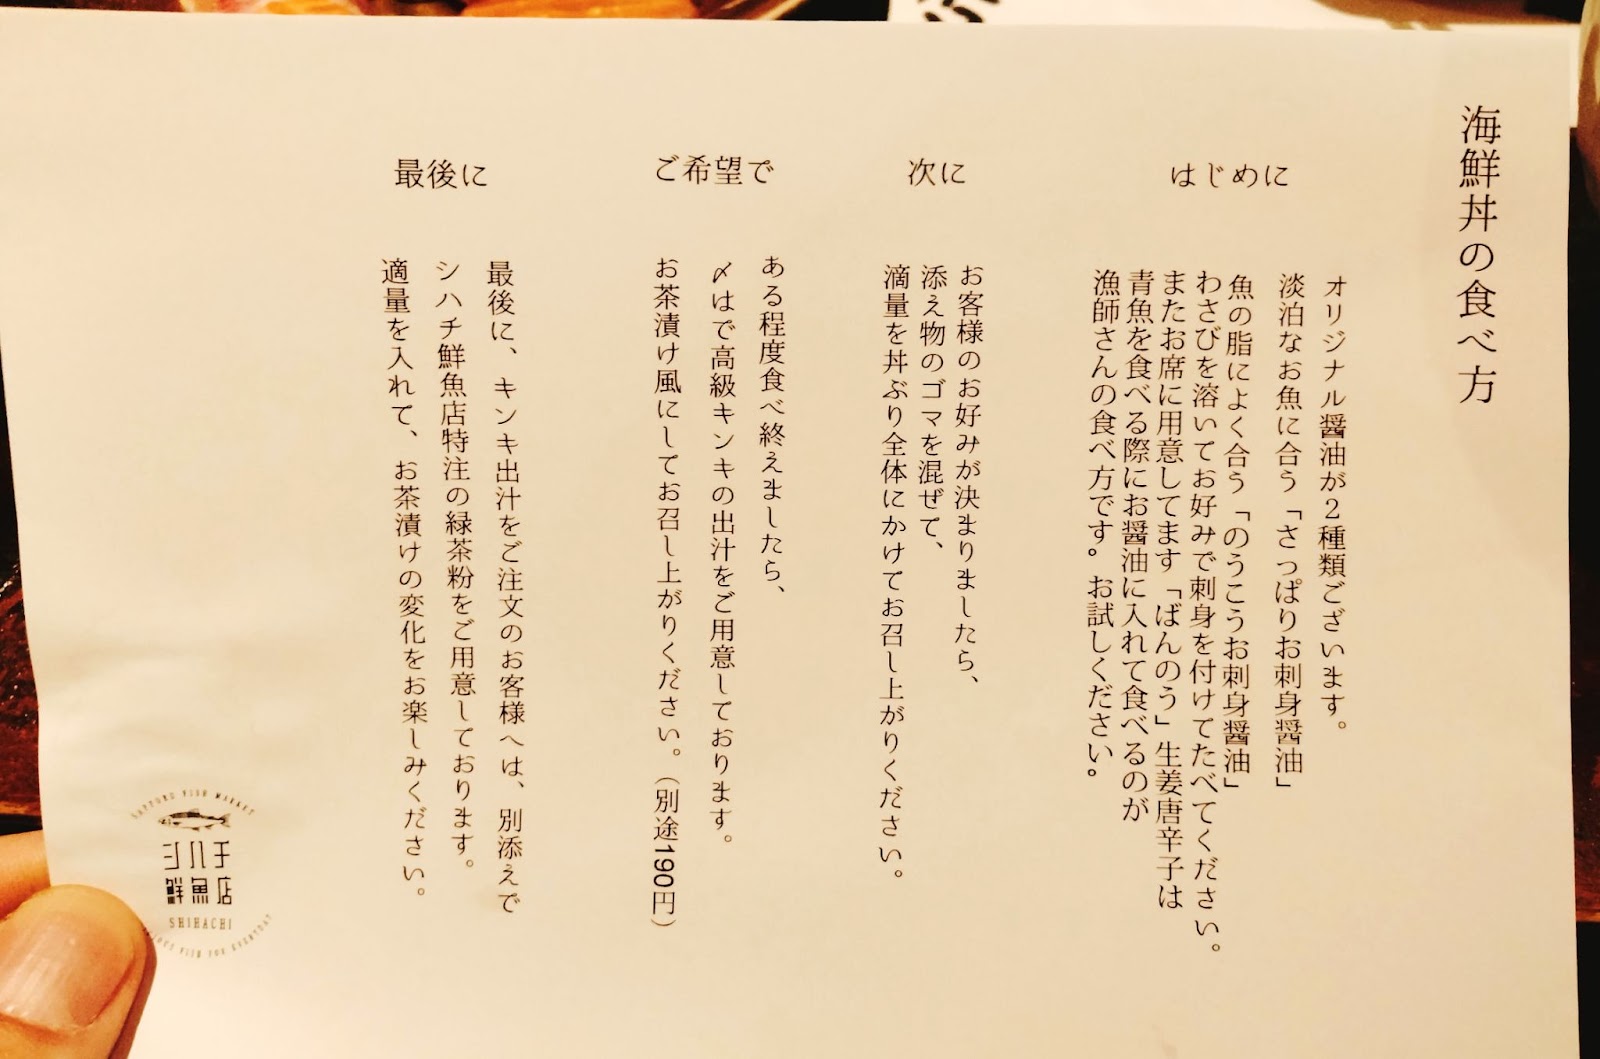 海鮮丼の食べ方
はじめに
オリジナル醤油が2種類ございます。
淡泊なお魚に合う「さっぱりお刺身醤油」
魚の脂によく合う「のうこうお刺身醤油」
わさびを溶いてお好みで刺身を付けてたべてください。
またお席に用意してます「ばんのう」生姜唐辛子は
青魚を食べる際にお醤油に入れて食べるのが
漁師さんの食べ方です。お試しください。
次に
お客様のお好みが決まりましたら、
添え物のゴマを混ぜて、
適量を丼ぶり全体にかけてお召し上がりください。
ご希望で
ある程度食べ終えましたら、
〆はで高級キンキの出汁をご用意しております。
お茶漬け風にしてお召し上がりください。（別途190円）
最後に
最後に、キンキ出汁をご注文のお客様へは、別添えで
シハチ鮮魚店特注の緑茶粉をご用意しております。
適量を入れて、お茶漬けの変化をお楽しみください。
SAPPORO FISH MARKET
シハチ
鮮魚店
SHIHACHI
FISH FOR EVERYDAY